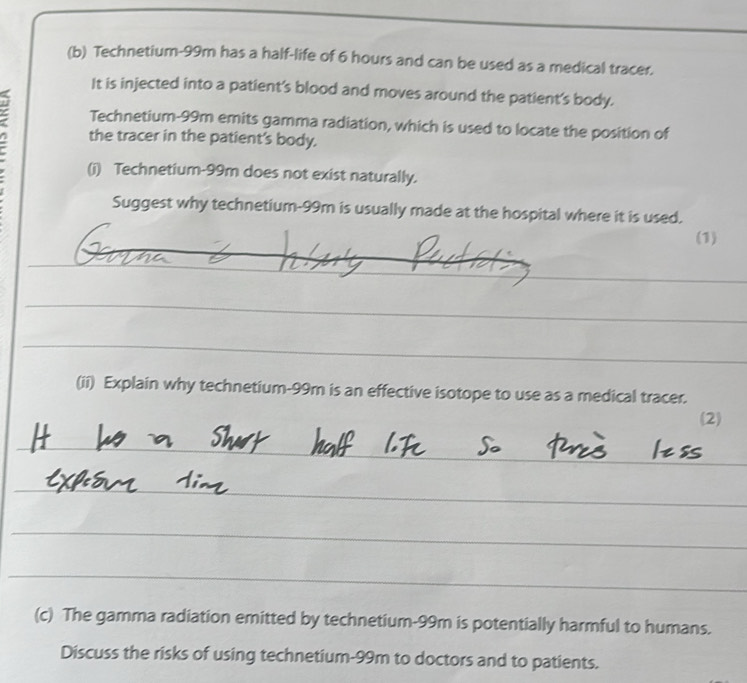 (b) Technetium-99m has a half-life of 6 hours and can be used as a medical tracer.
It is injected into a patient's blood and moves around the patient's body.
Technetium-99m emits gamma radiation, which is used to locate the position of
the tracer in the patient's body.
(i) Technetium-99m does not exist naturally.
Suggest why technetium-99m is usually made at the hospital where it is used.
(1)
Gamma is highly
(ii) Explain why technetium-99m is an effective isotope to use as a medical tracer.
(2)
It has a short half life so less
exposure time
(c) The gamma radiation emitted by technetium-99m is potentially harmful to humans.
Discuss the risks of using technetium-99m to doctors and to patients.
THIS AREA